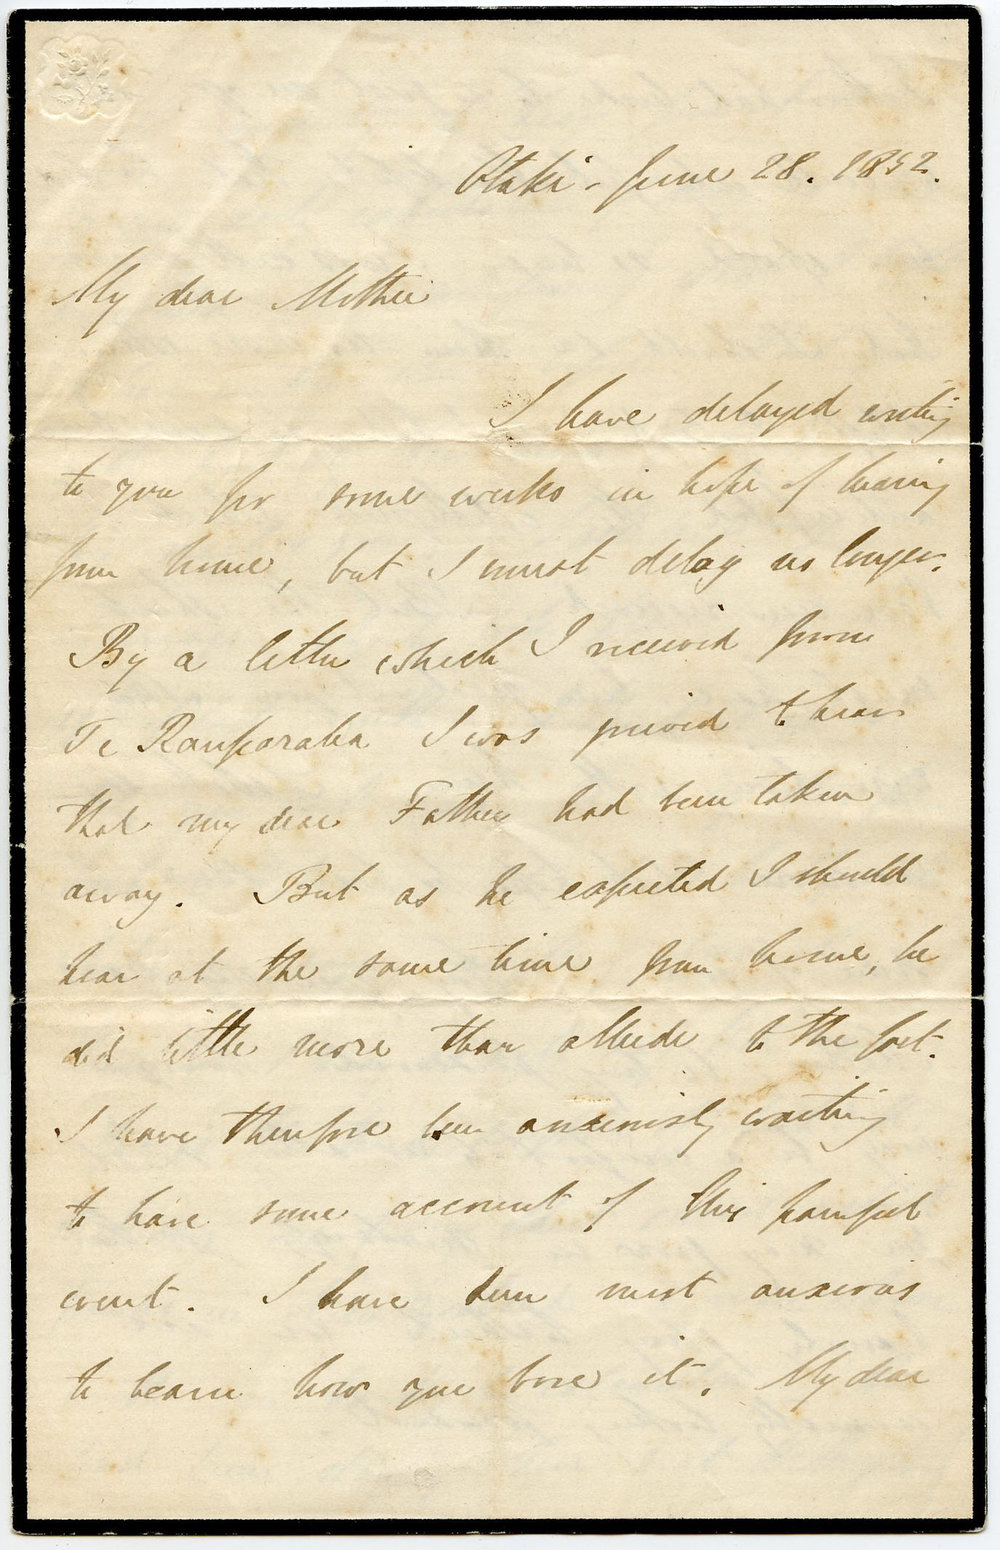 Otaki - June 28. 1852.
My dear Mother
I have delayed writing
to you for some weeks in hope of hearing
from home, but I must delay no longer.
By a letter which I received from
Te Rauparaha I was grieved to hear
that my dear Father had been taken
away. But as he expected I should
hear at the same time from home, he
did little more than allude to the fact.
I have therefore been anxiously waiting
to have some account of this painful
event. I have been most anxious
to learn how you bore it. My dear